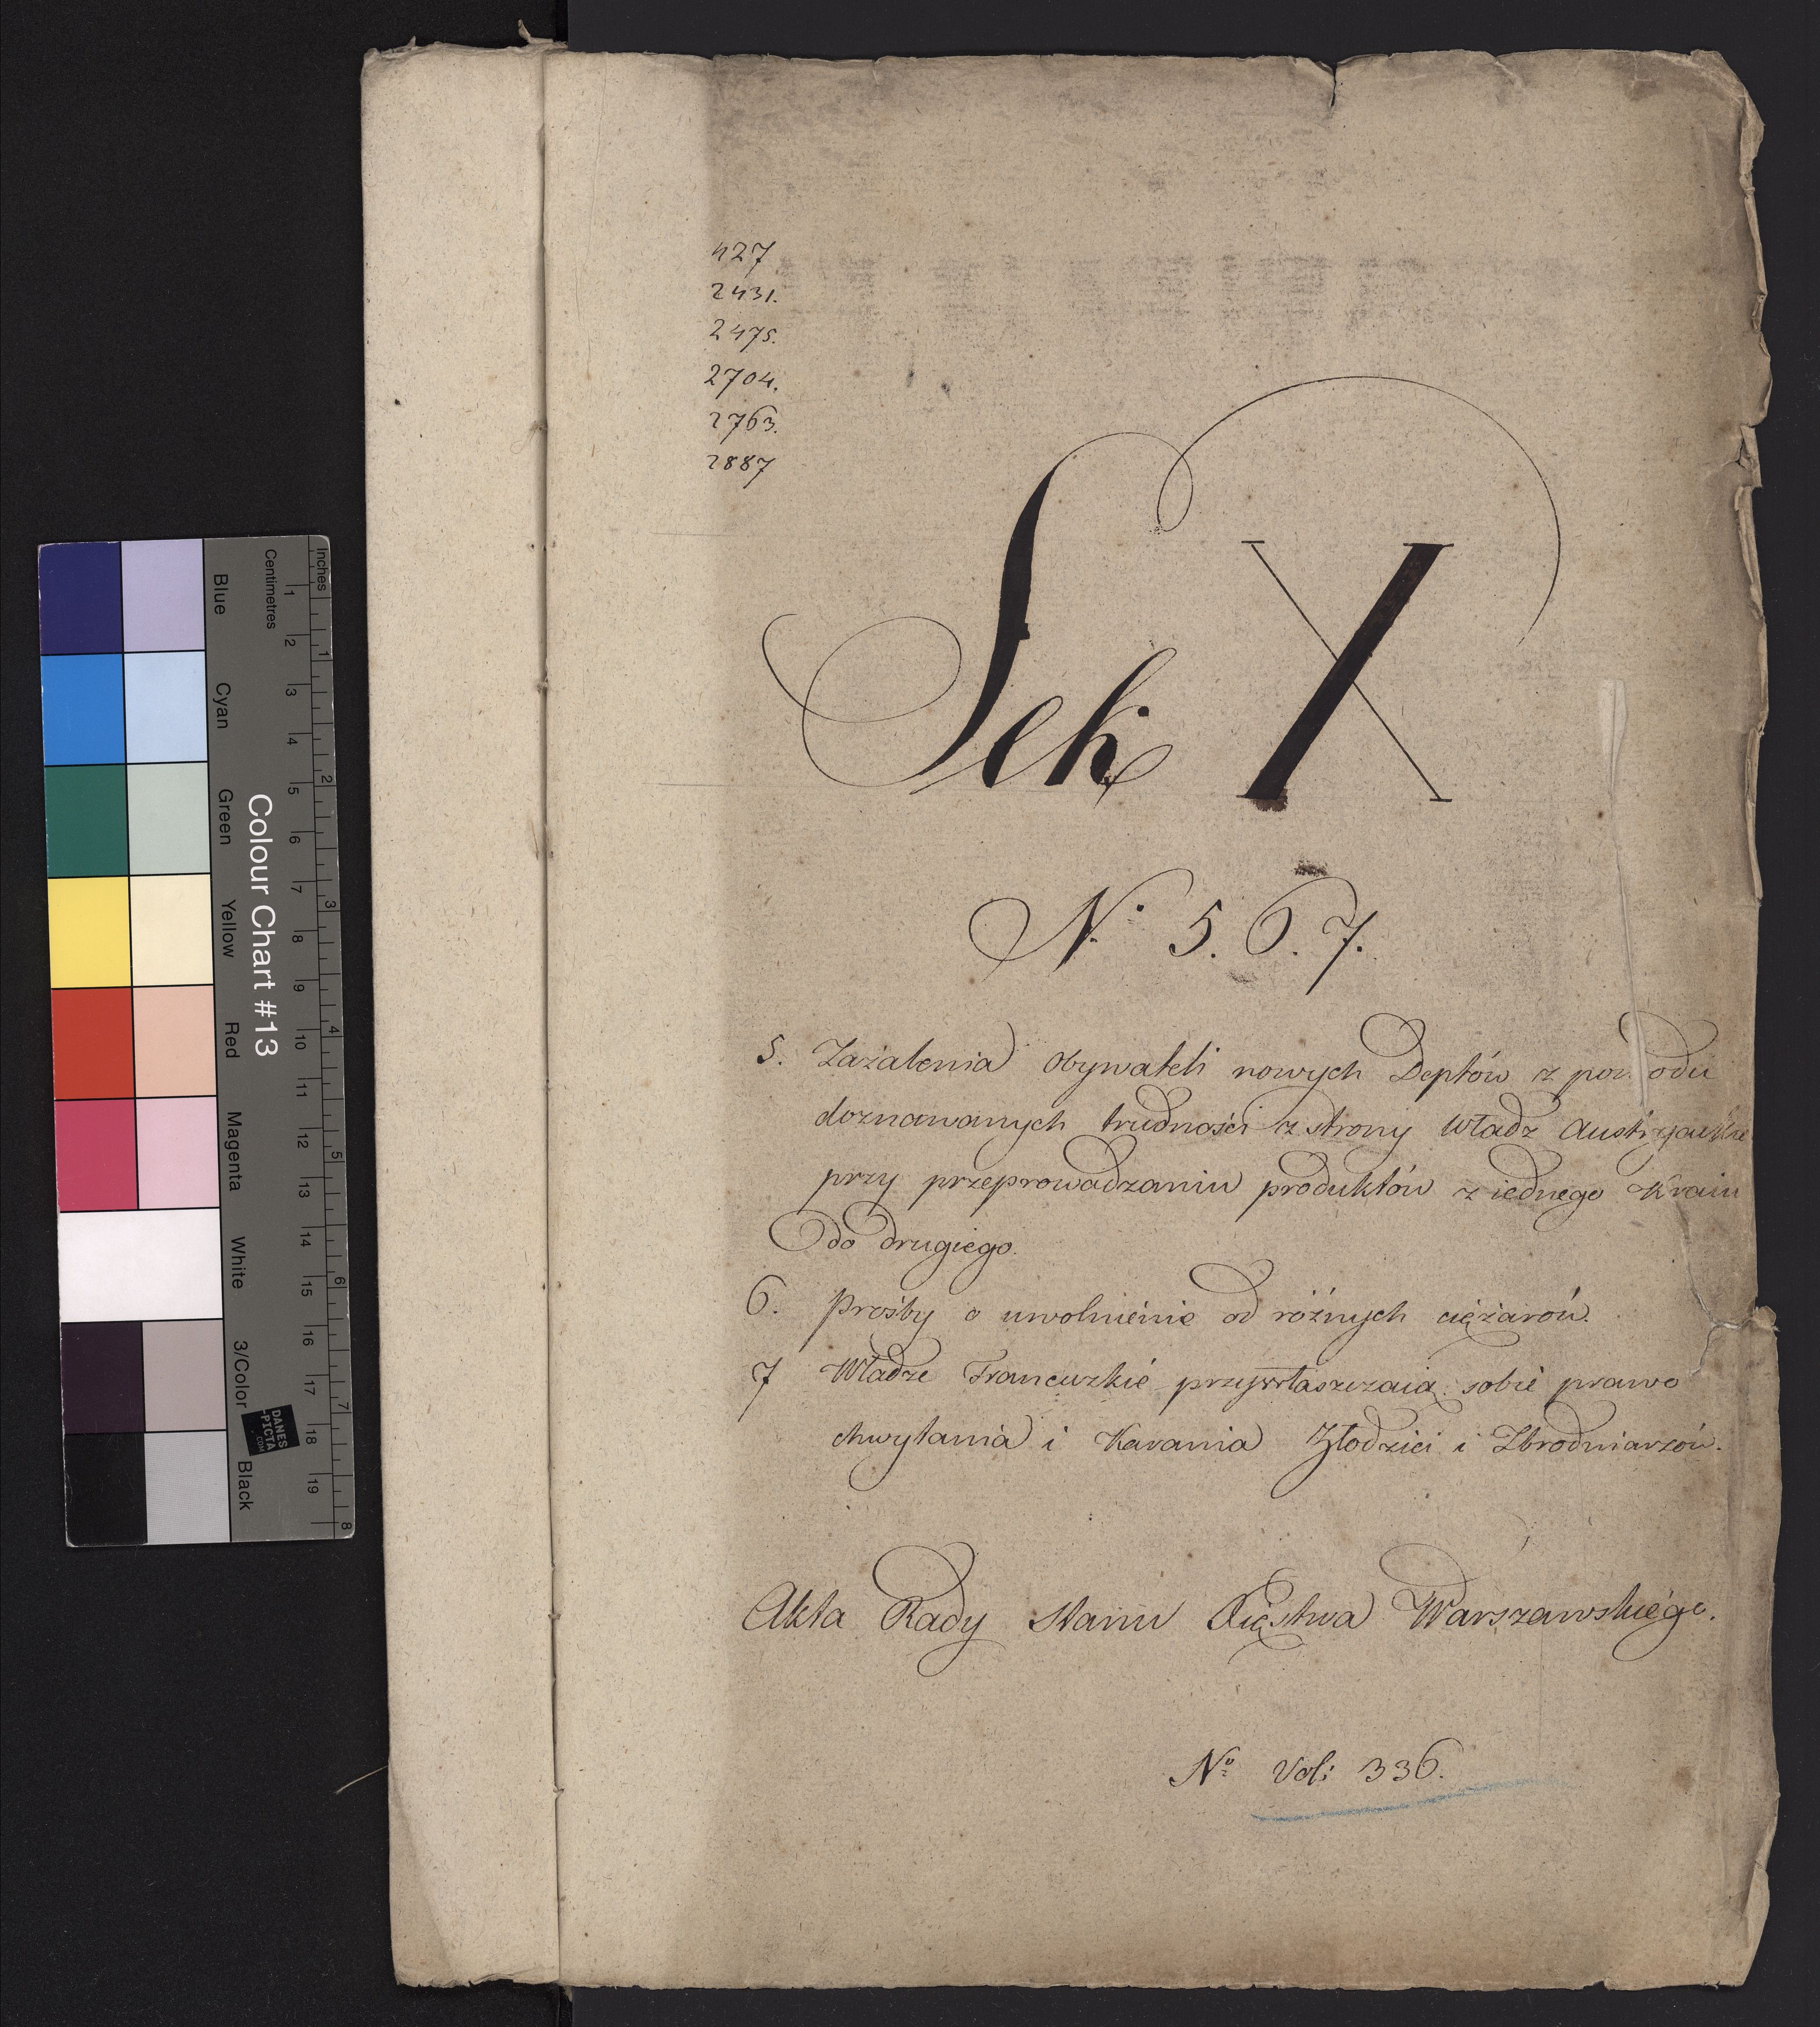 427
2431.
2475.
2704.
2763.
2887
Sek: X
N: 5. 6. 7.
5. Zażalenia Obywateli nowych Deptów z powodu
doznawanych trudności z strony Władz Austryackie
przy przeprowadzaniu produktów z iednego Kraiu
do drugiego.
6. Prośby o uwolnienie od różnych ciężarów.
7 Władze Francuzkie przywłaszczaią sobie prawo
chwytania i Karania Złodziei i Zbrodniarzów.
Akta Rady Stanu Xięstwa Warszawskiégo.
Nº Vol: 336.
Inches
Centimetres
1 2 3 4 5 6 7 8 9 10 11 12 13 14 15 16 17 18 19
1 2 3 4 5 6 7 8
Colour Chart #13
Blue Cyan Green Yellow Red Magenta White 3/Color Black
DANES
-PICTA
.COM